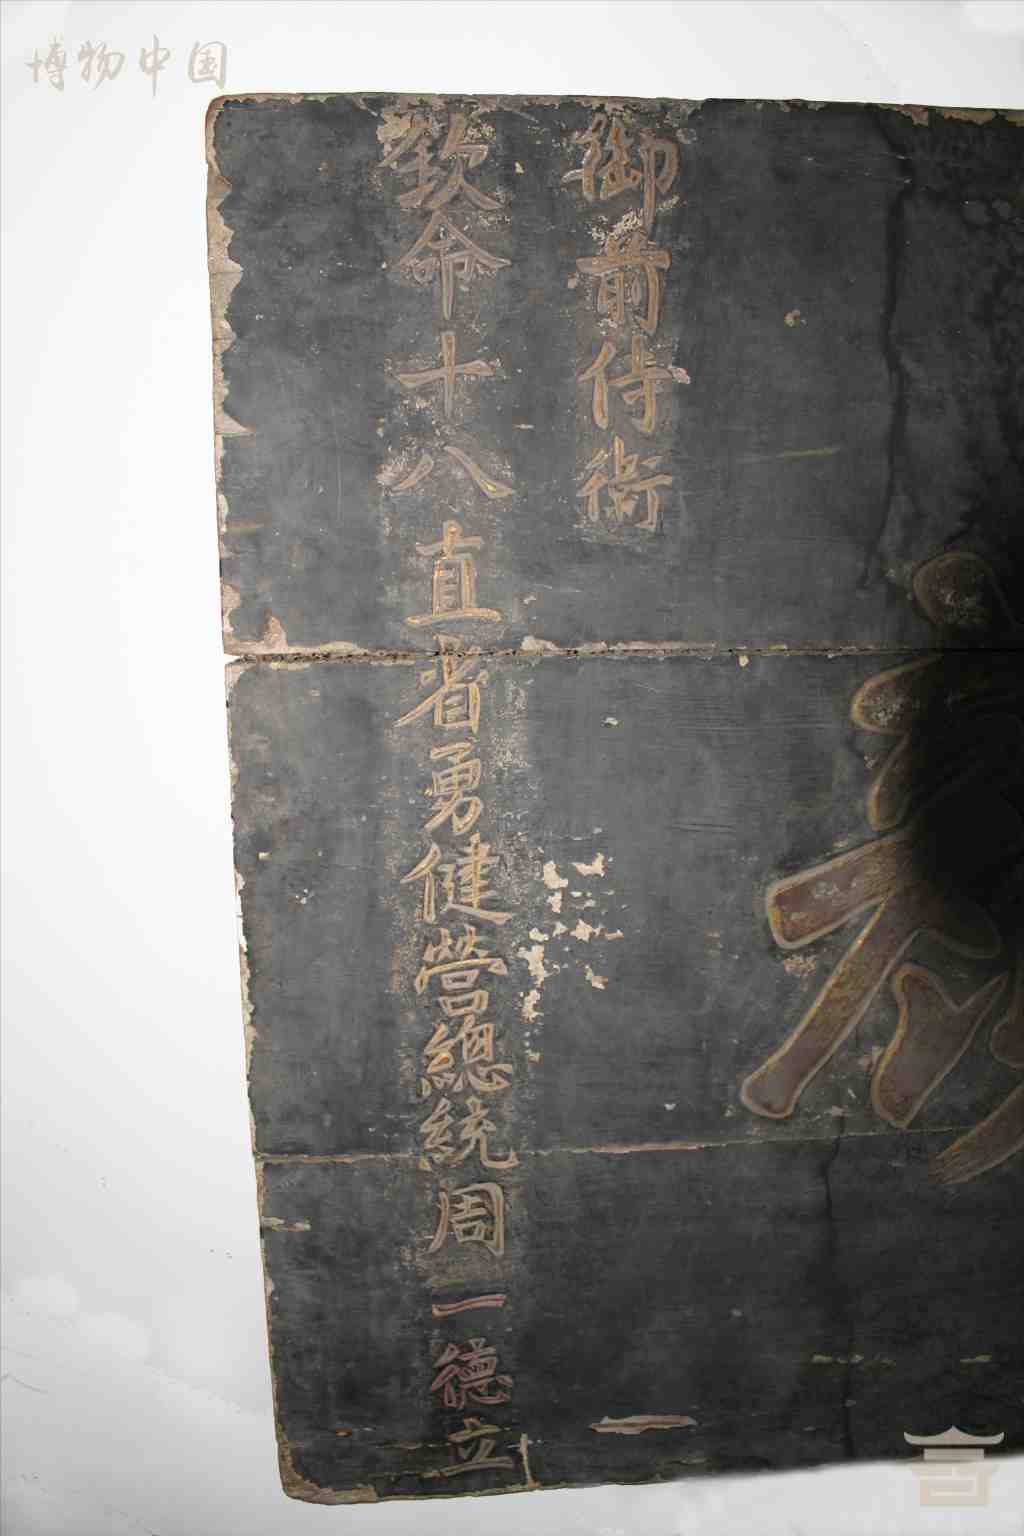 博物中国
御前侍衛
欽命十八直省勇健營總統周一德立